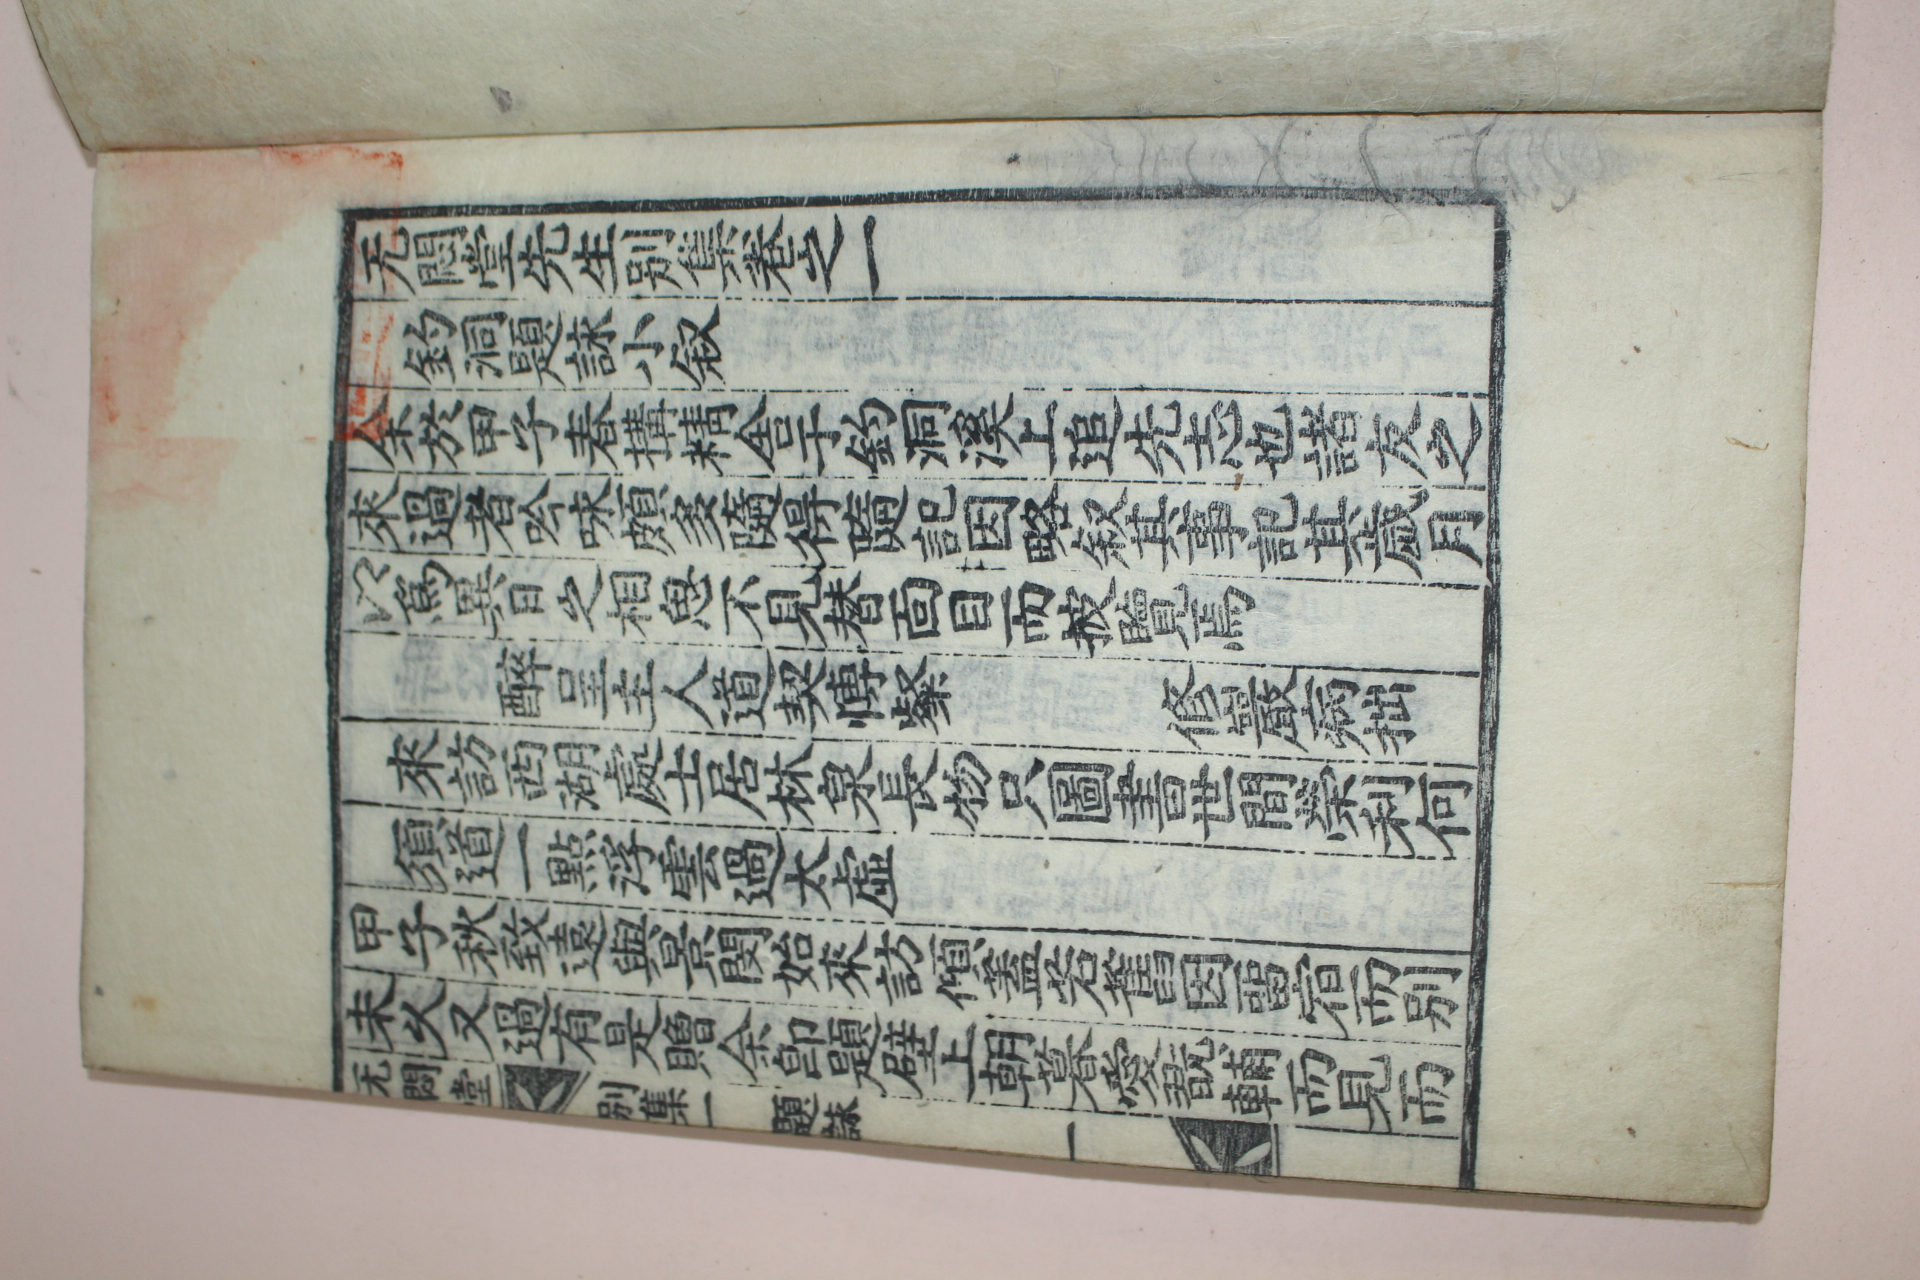 无悶堂先生別集卷之一
釣洞題詠小叙
余於甲子春構精舍于釣洞溪上追先志也諸友之
來過者吟咏頗多隨得隨記因略叙其事記其歲月
以爲異日之相思不見替面目而披覽焉
醉呈主人道契博粲 修巖病拙
來訪西湖處士居林泉長物只圖書世間榮利何
須道一點浮雲過太虛
甲子秋致遠與景閔始來訪傾蓋若舊因留宿而別
未久又過有是贈余卽題壁上朝暮愛而見而
无悶堂 別集一 題詠 一